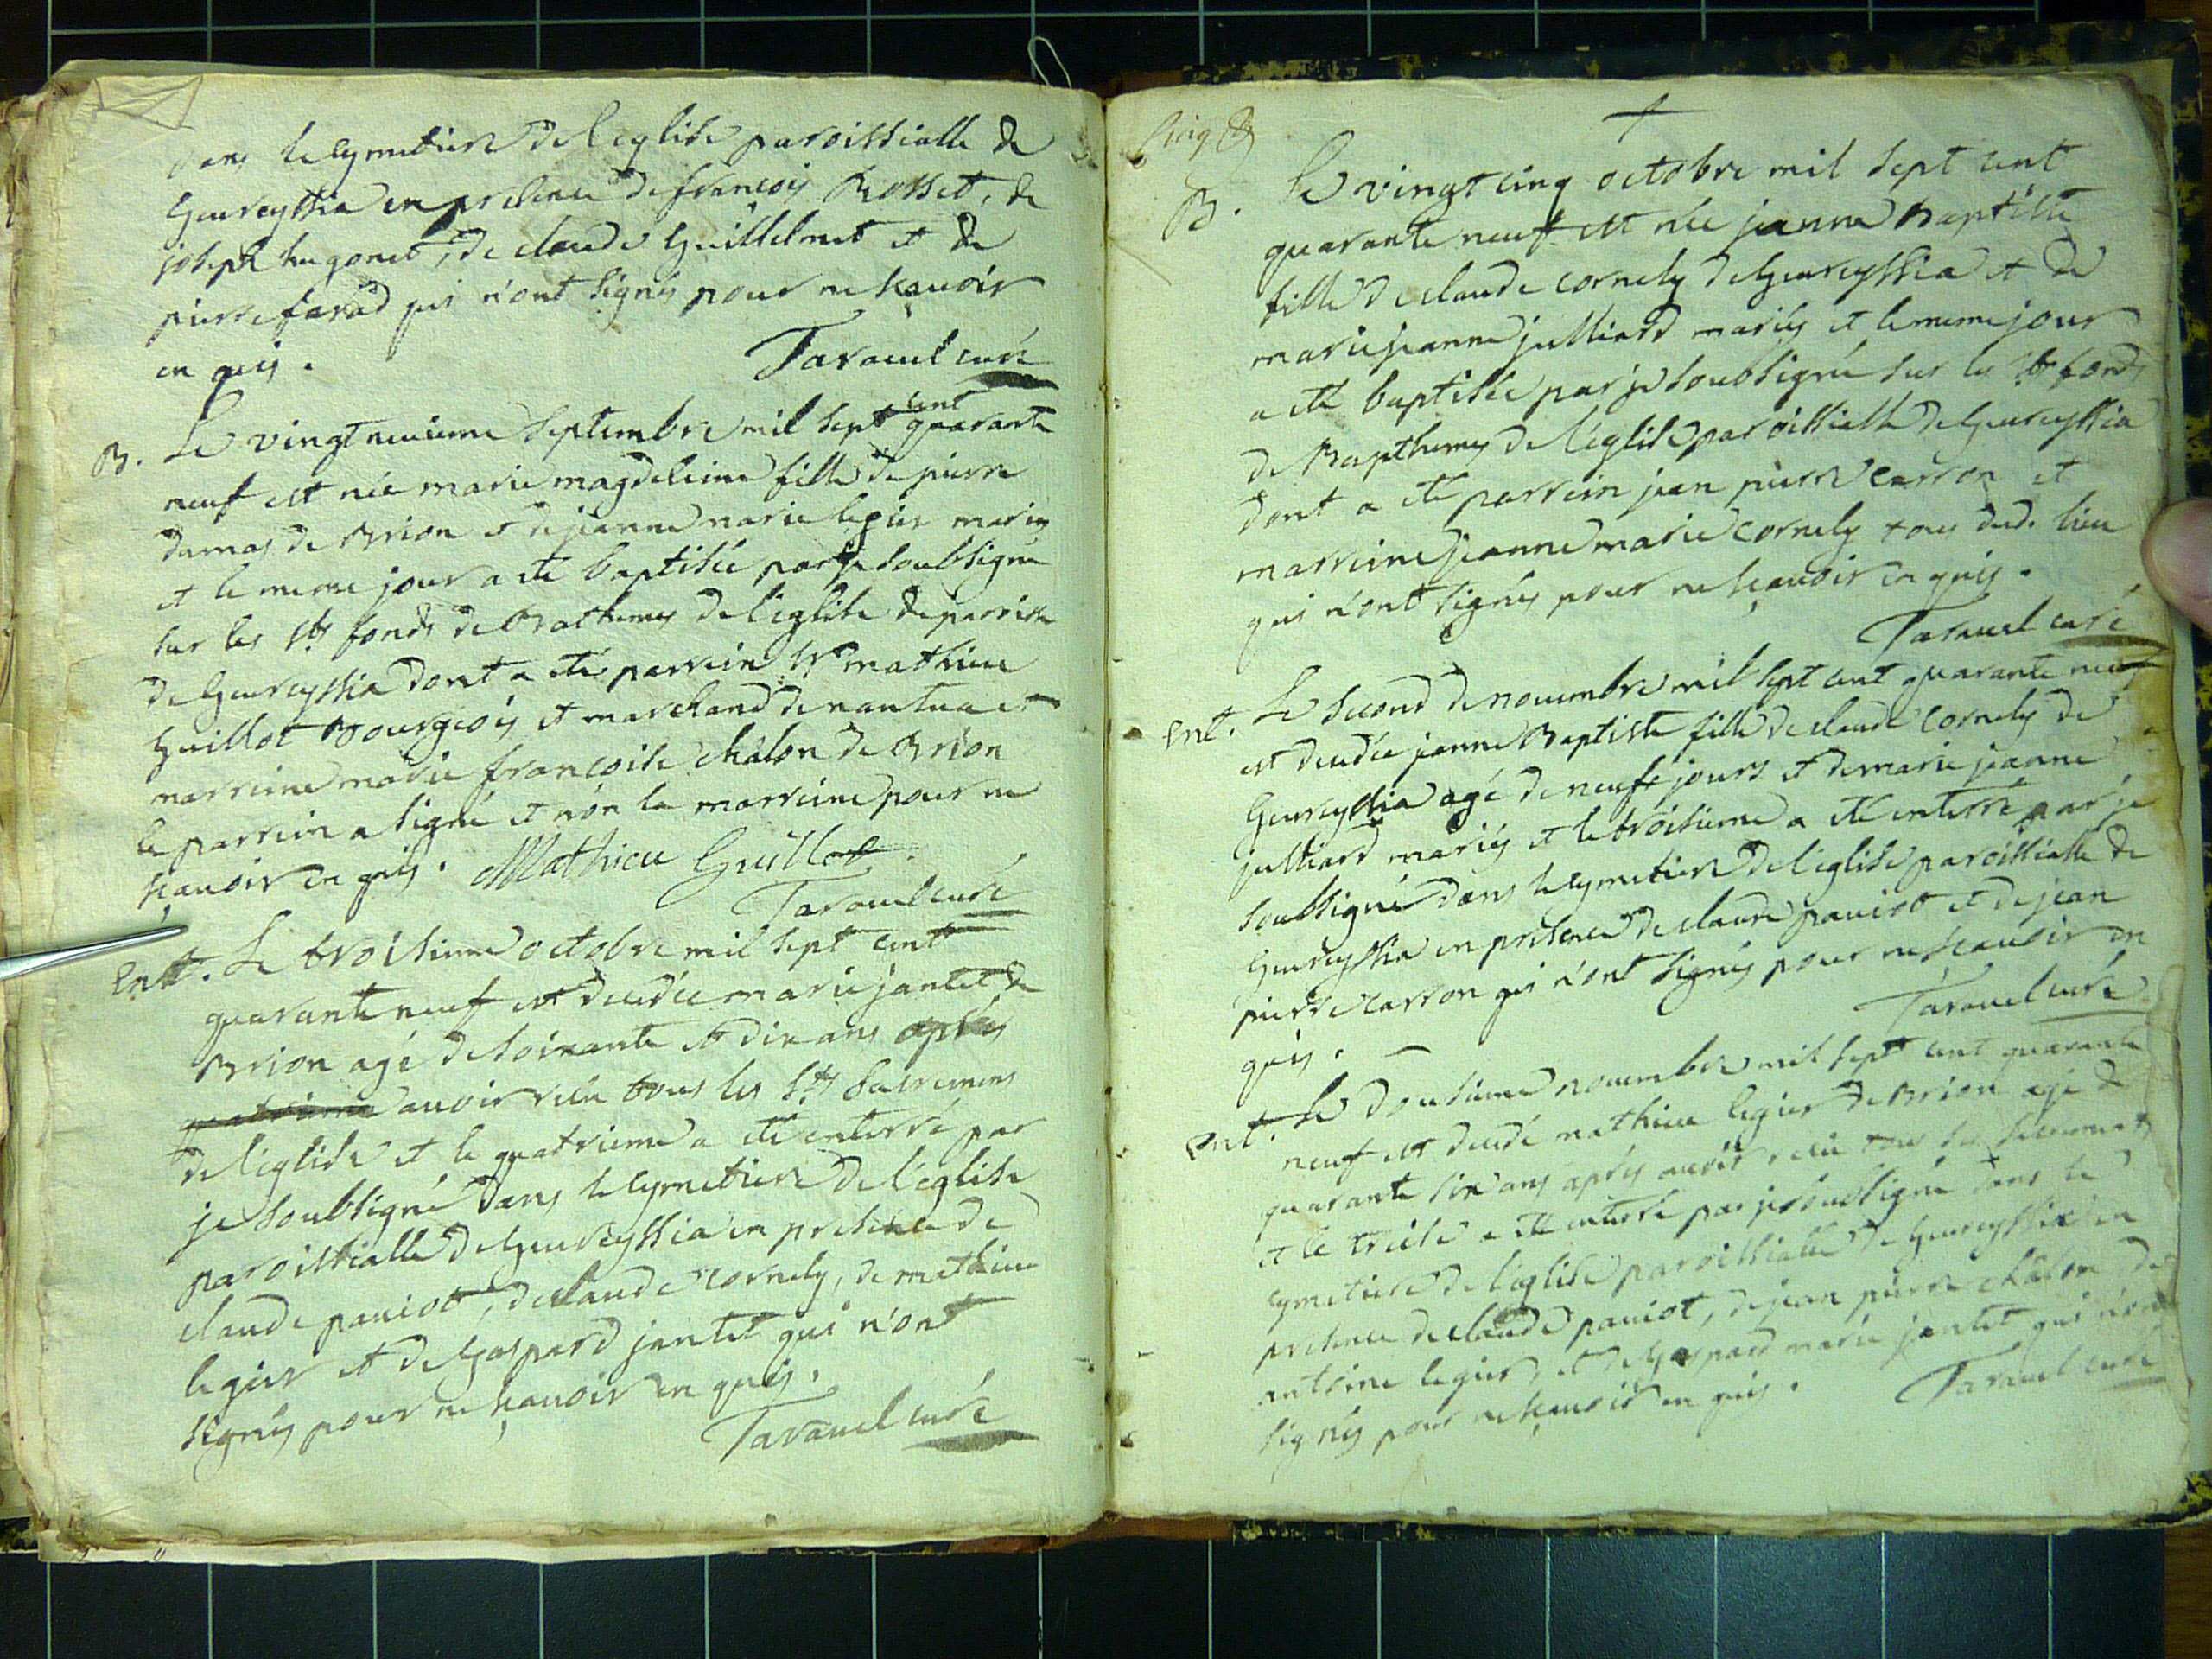 dans le cymetiere de l'eglise paroissialle de
Geureyssia en presence de françois Rosset, de
joseph hugonet, de claude Guillelmet et de
pierre favad qui n'ont signés pour ne sçavoir
en quis. Taravel curé
B. Le vingtneuieme septembre mil sept cent quarante
neuf est née marie magdeleine fille de pierre
damas de Brion et de jeanne marie legier mariés
et le meme jour a eté baptisée par je soubsigné
sur les sts fonds de Bathemes de l'eglise de parrisse
de Geureyssia dont a eté parrein Sr mathieu
Guillot Bourgeois et marchand de nantua et
marreine marie françoise châlon de Brion
le parrein a signé et non la marreine pour ne
sçavoir en quis. Mathieu Guillot.
Taravel curé
Ent. Le troisieme octobre mil sept cent
quarante neuf est decedée marie jantet de
Brion agé de soixante et dix ans après
quatrieme avoir reçu tous les Sts Sacremens
de l'eglise et le quatrieme a eté enterré par
je soubsigné dans le cymetiere de l'eglise
paroissialle de Geureyssia en presence de
claude paviot, de claude cornely, de mathieu
legier et de Gaspard jantet qui n'ont
signés pour ne sçavoir en quis.
Taravel curé
Cinq
B. Le vingt cinq octobre mil sept cent
quarante neuf est née jeanne Baptiste
fille de claude cornely de Geureyssia et de
marie jeanne julliard mariés et le meme jour
a eté baptisée par je soubsigné sur les Sts fonds
de Bapthemes de l'eglise paroissialle de Geureyssia
dont a eté parrein jean pierre Carron et
marreine jeanne marie cornely tous dud. lieu
qui n'ont signés pour ne sçavoir en quis.
Taravel curé
Ent. Le second de novembre mil sept cent quarante neuf
est decedée jeanne Baptiste fille de claude cornely de
Geureyssia agé de neufs jours et de marie jeanne
julliard mariés et le troisieme a eté enterré par je
soubsigné dans le cymetiere de l'eglise paroissialle de
Geureyssia en presence de claude paviot et de jean
pierre Carron qui n'ont signés pour ne sçavoir en
quis. Taravel curé
Ent. Le dousieme novembre mil sept cent quarante
neuf est decedé mathieu legier de Brion agé de
quarante six ans après avoir reçu tous les sacremens
et le treise a eté enterré par je soubsigné dans le
cymetiere de l'eglise paroissialle de Geureyssia en
presence de claude paviot, de jean pierre châlon de
antoine legier, et de Gaspard marie jantet qui n'ont
signés pour ne sçavoir en quis. Taravel curé